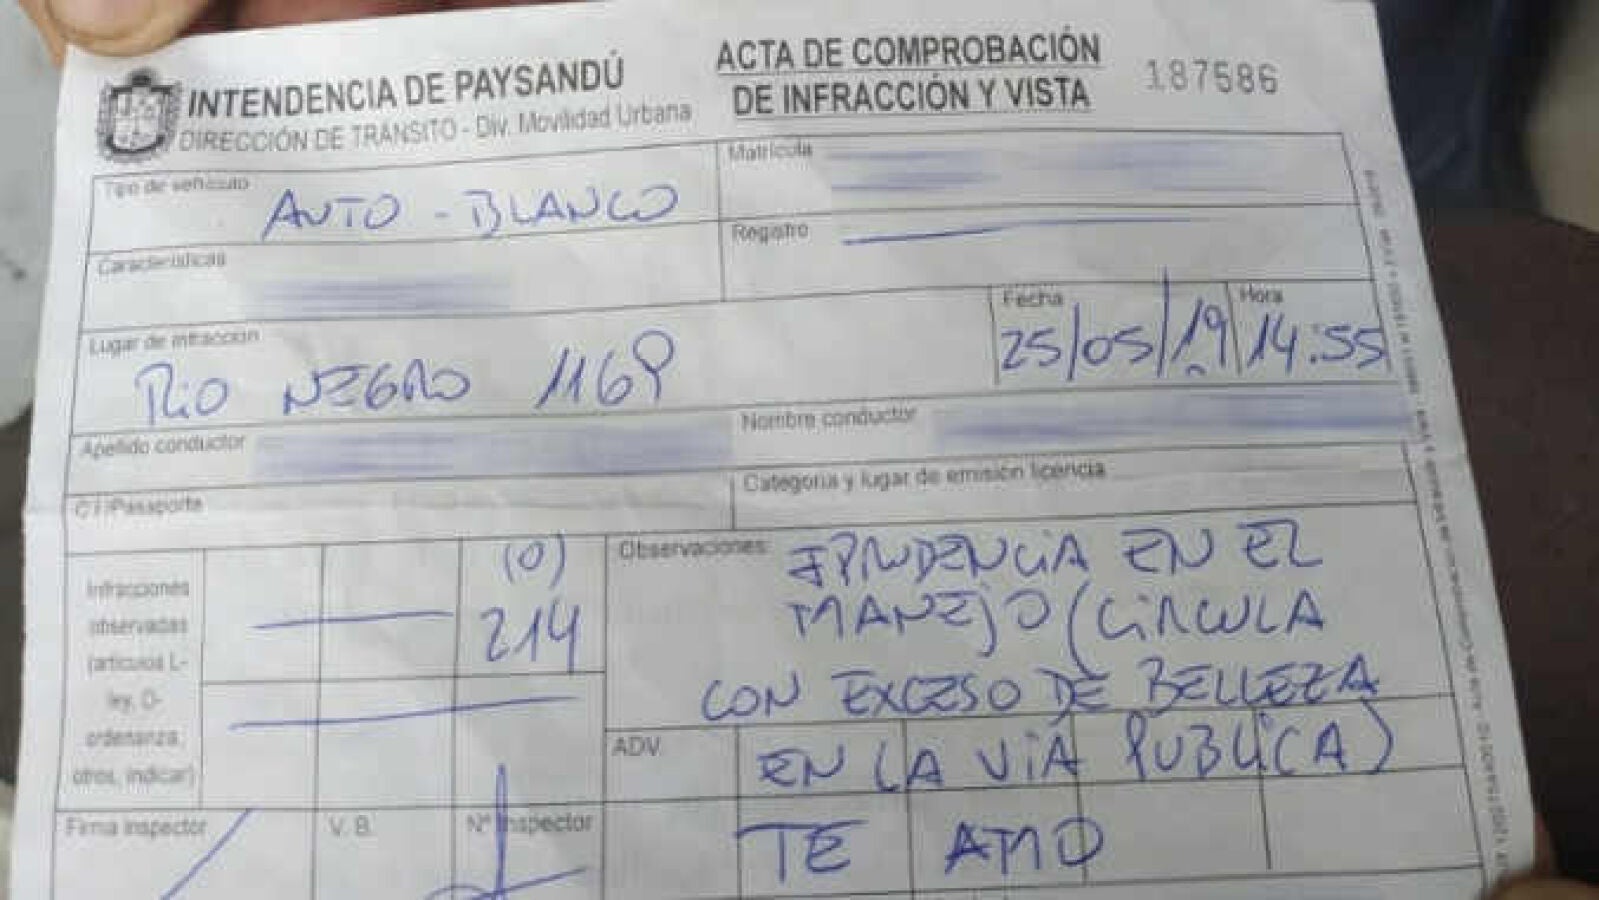 INTENDENCIA DE PAYSANDÚ
DIRECCIÓN DE TRÁNSITO - Div. Movilidad Urbana
ACTA DE COMPROBACIÓN
DE INFRACCIÓN Y VISTA
187586
Tipo de vehículo
AUTO - BLANCO
Matrícula
Registro
Características
Lugar de infracción
RIO NEGRO 1169
Fecha
25/05/19
Hora
14:55
Apellido conductor
Nombre conductor
C.I/Pasaporte
Categoría y lugar de emisión licencia
Infracciones
observadas
(artículos L-
ley, O-
ordenanza,
otros, indicar)
(O)
214
Observaciones:
EN EL
MANEJO (CIRCULA
CON EXCESO DE BELLEZA
ADV.
EN LA VIA PUBLICA)
TE AMO
Firma inspector
V. B.
Nº Inspector